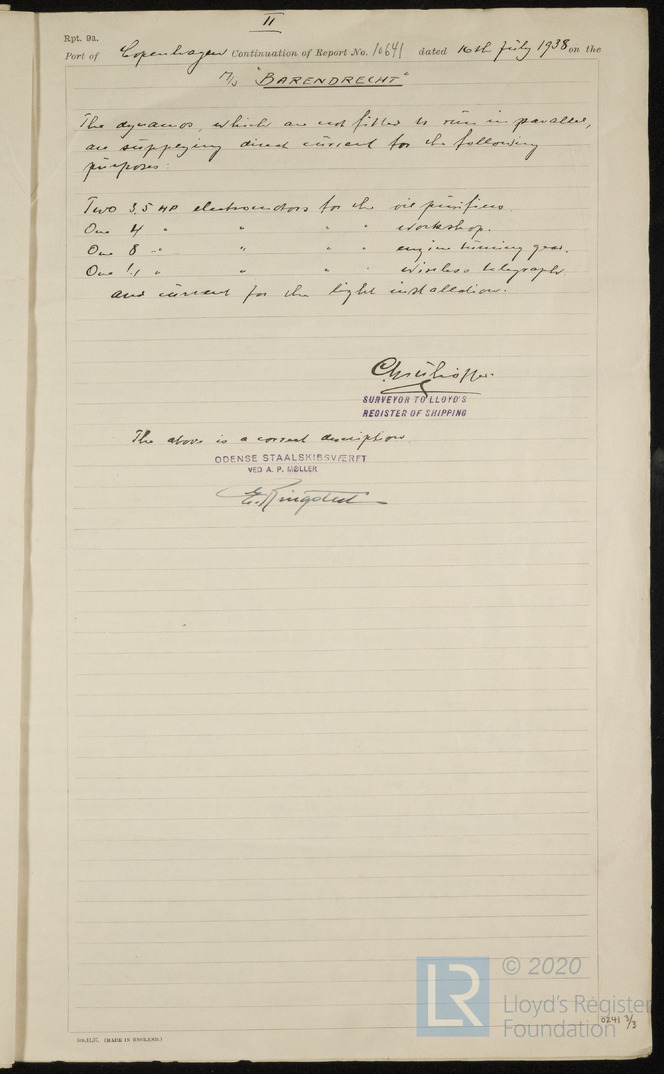 II
Rpt. 9a.
Port of Copenhagen Continuation of Report No. 10641 dated 16th July 1938 on the
M/S "BARENDRECHT"
The dynamos, which are not fitted to run in parallel,
are supplying direct current for the following
purposes:
Two 3,5 HP electromotors for the oil purifiers.
One 4 " " " " workshop.
One 8 " " " " engine turning gear.
One " " " " wireless telegraph
and current for the light installation.
SURVEYOR TO LLOYD'S
REGISTER OF SHIPPING
The above is a correct description.
ODENSE STAALSKIBSVÆRFT
VED A. P. MØLLER
E. Ringsted
© 2020
LR
Lloyd's Register
Foundation
0241 3/3
(MADE IN ENGLAND.)